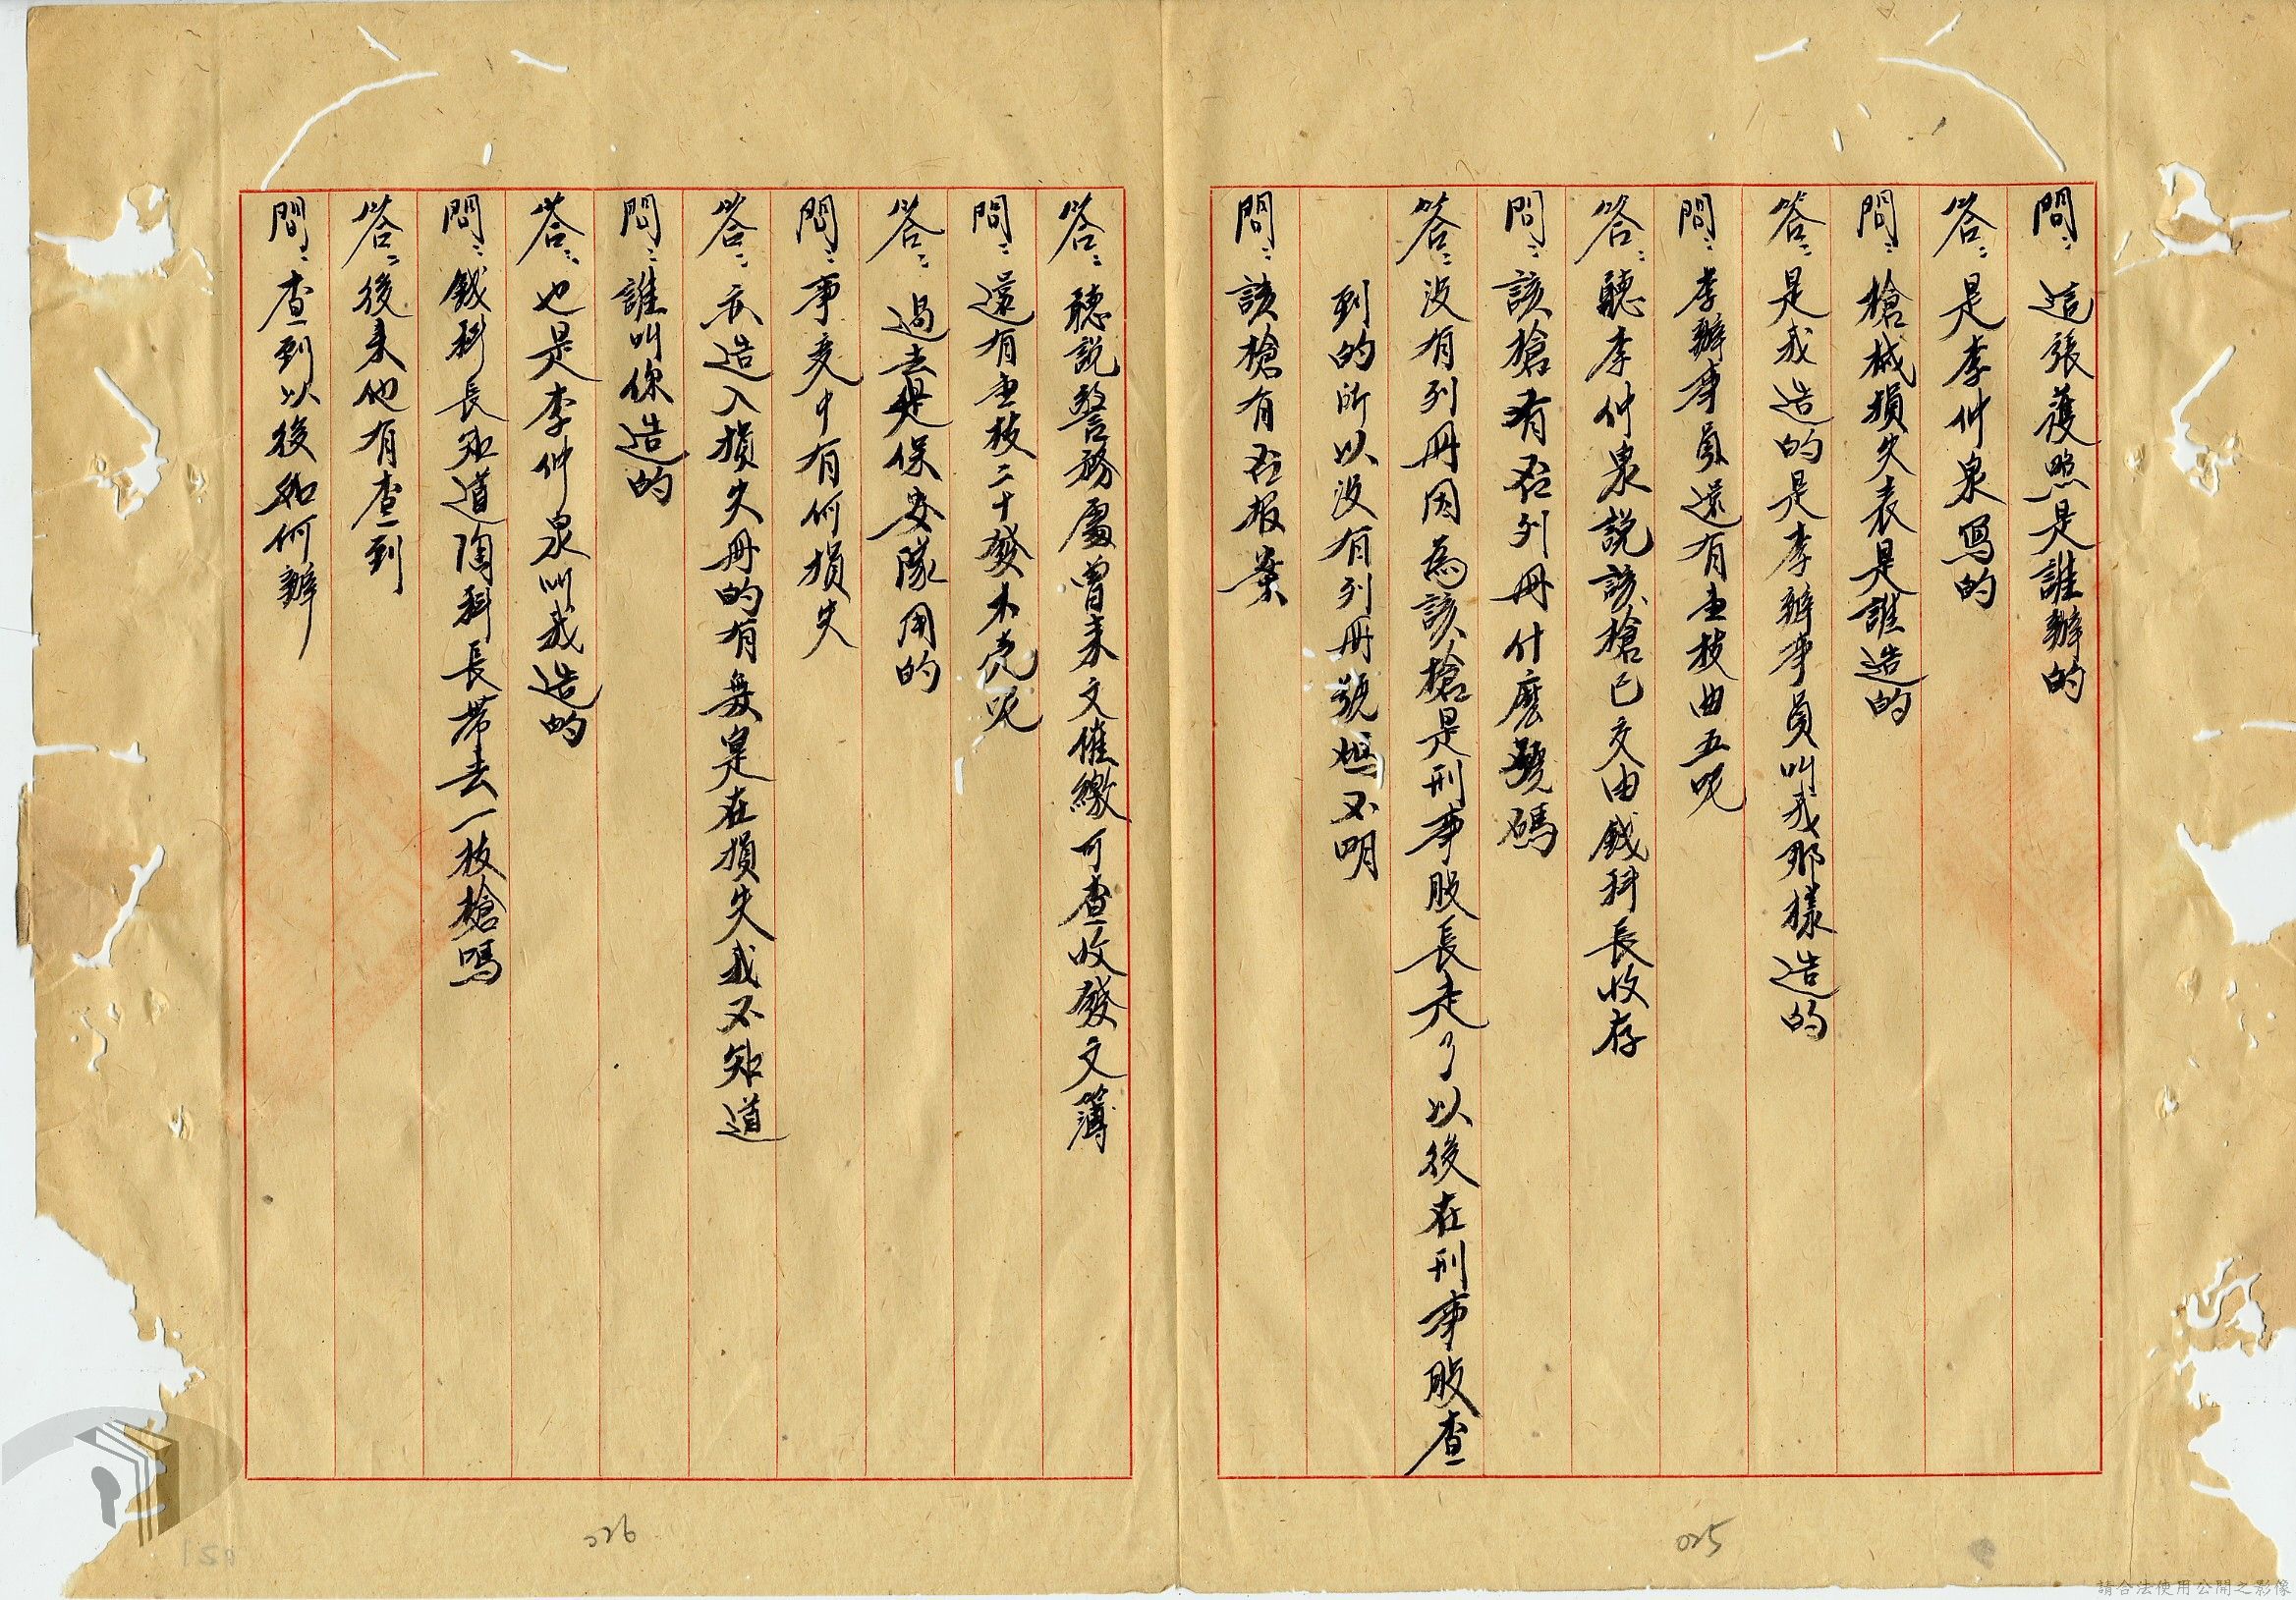 問：這張護照是誰辦的
答：是李仲泉寫的
問：槍械損失表是誰造的
答：是我造的是李辦事員叫我那樣造的
問：李辦事員還有壹枝曲五呢
答：聽李仲泉說該槍已交由錢科長收存
問：該槍有否列冊什麼號碼
答：沒有列冊因為該槍是刑事股長走了以後在刑事股查
到的所以沒有列冊號碼不明
問：該槍有否報案
答：聽說警務處曾來文催繳可查收發文簿
問：還有壹枝二十發木壳呢
答：過去是保安隊用的
問：事变中有何損失
答：亦造入損失冊的有無是在損失我不知道
問：誰叫你造的
答：也是李仲泉叫我造的
問：錢科長知道陶科長带去一枝槍嗎
答：後来他有查到
問：查到以後如何辦
025
026
請合法使用公開之影像